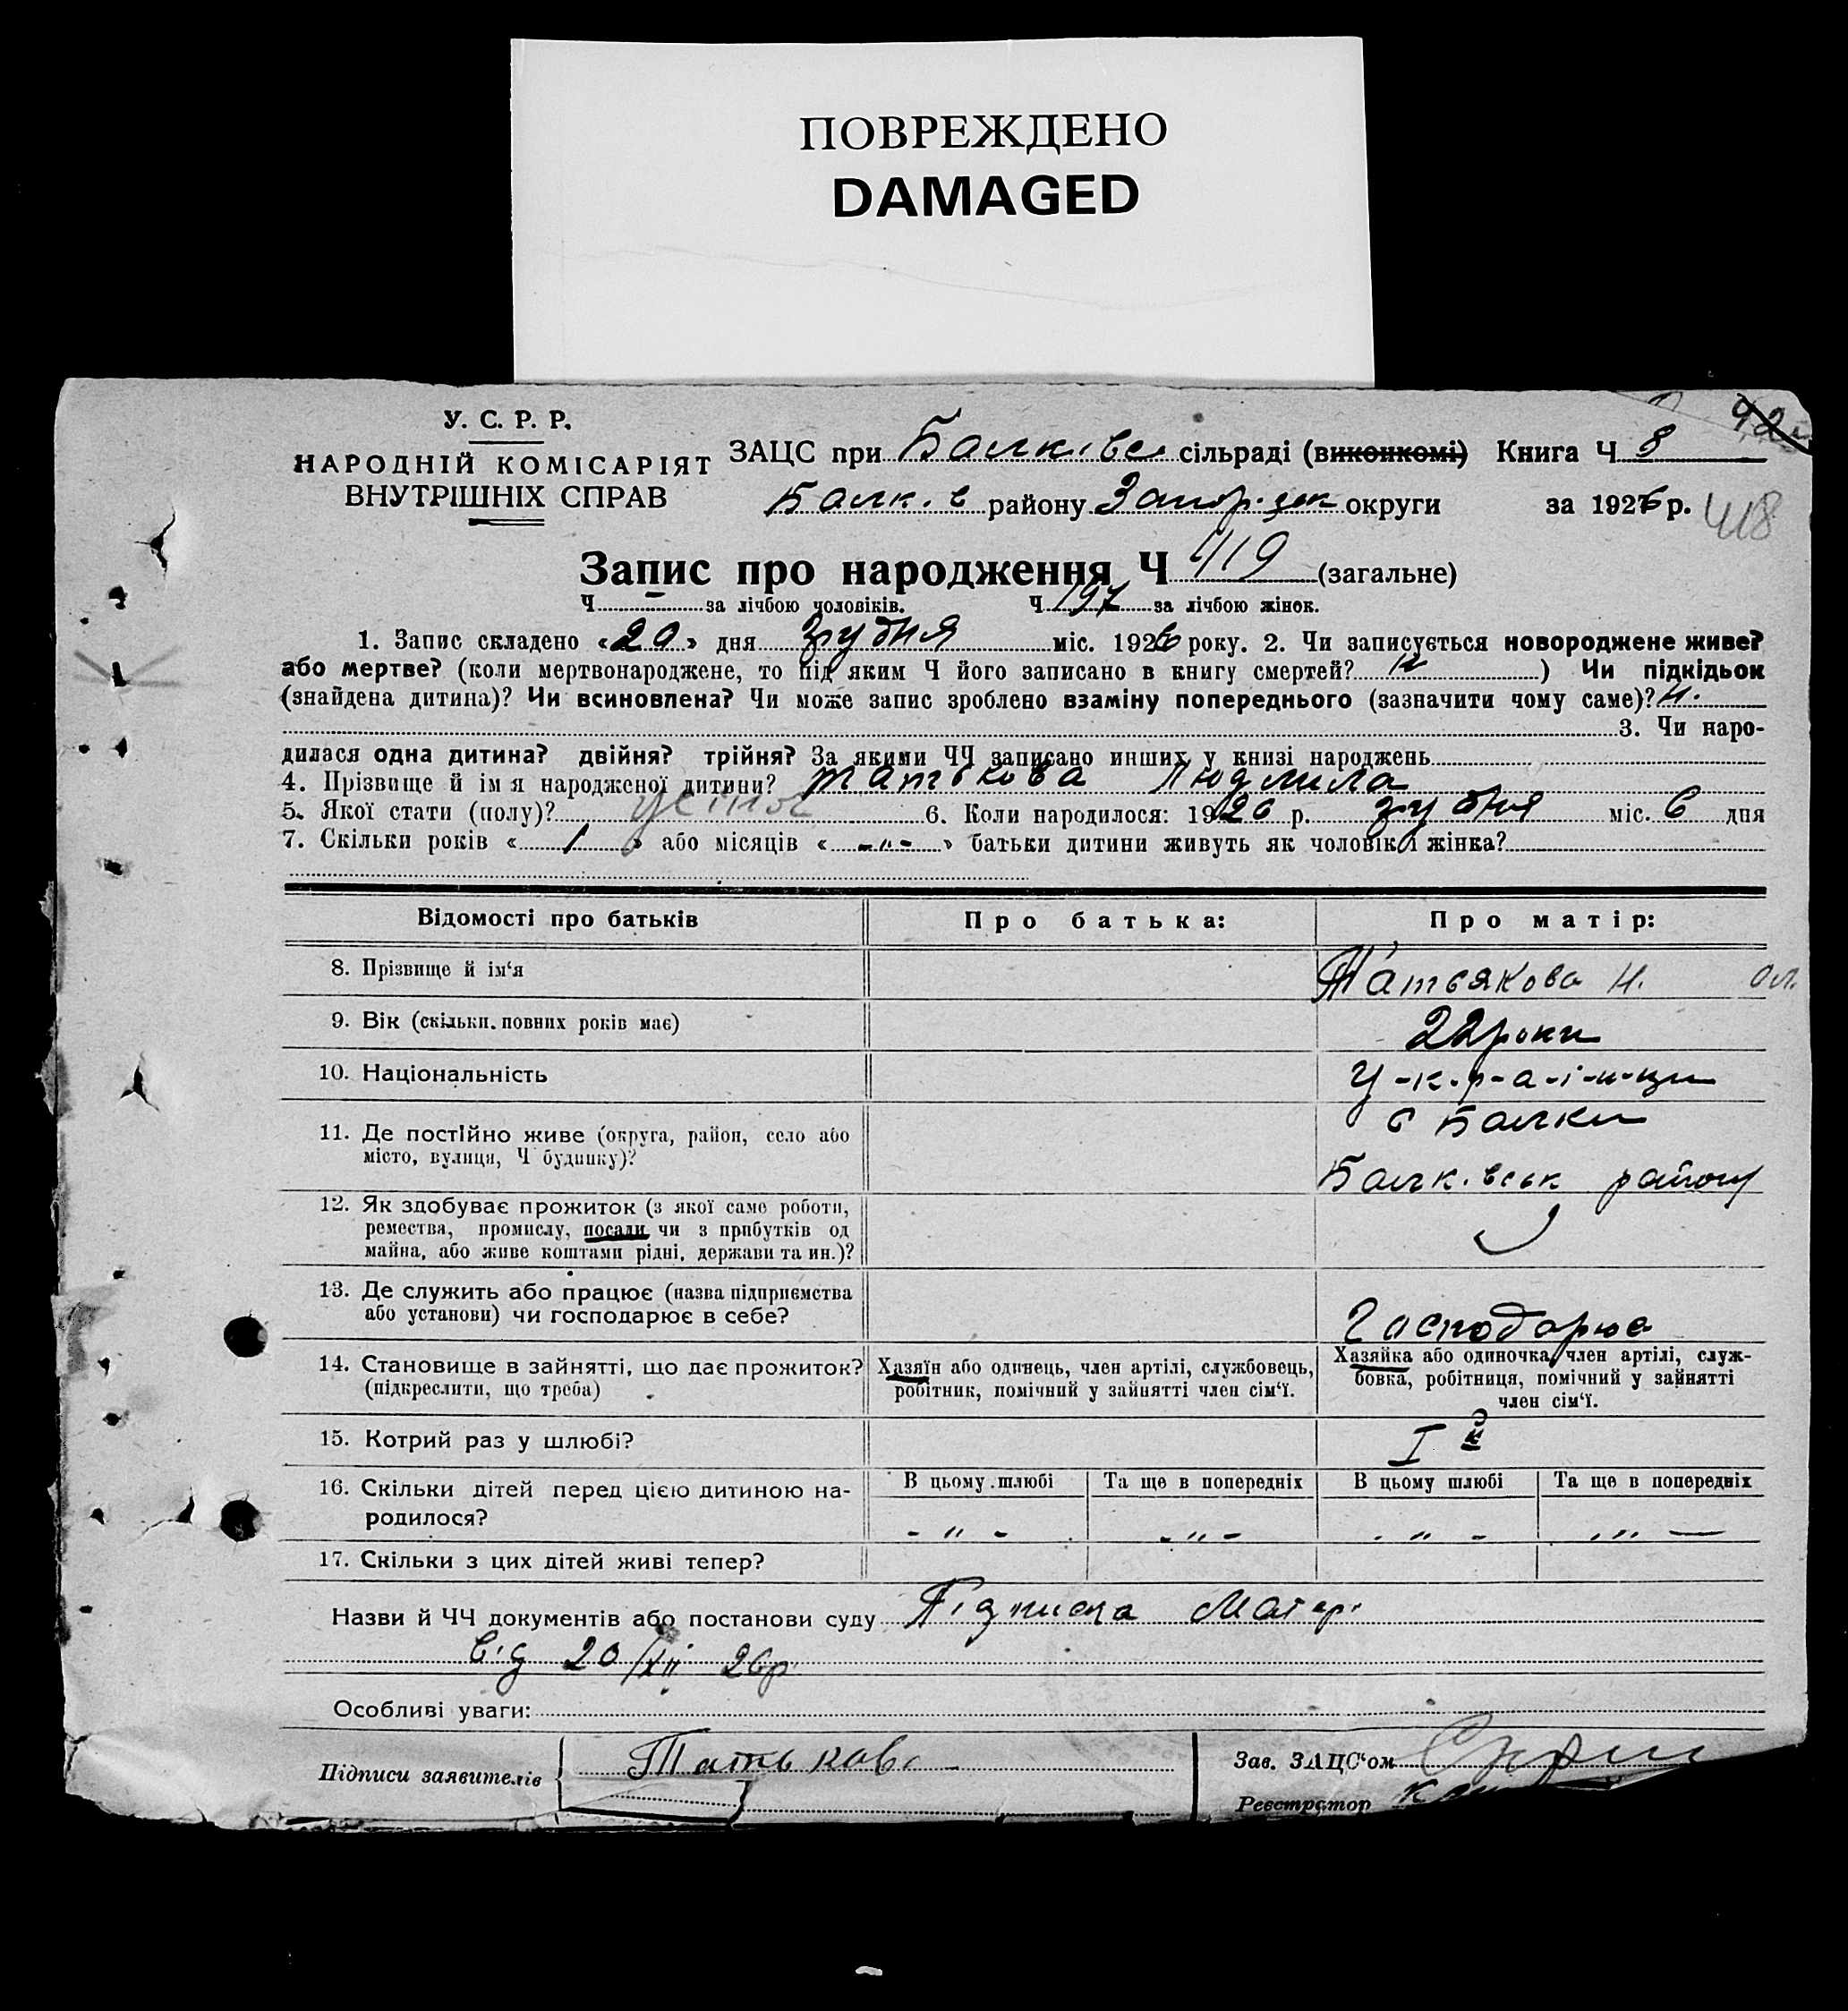 ПОВРЕЖДЕНО
DAMAGED
У. С. Р. Р.
НАРОДНІЙ КОМІСАРІЯТ
ВНУТРІШНІХ СПРАВ
ЗАЦС при сільраді (виконкомі) Книга Ч 8
Балк. в району округи за 1926 р. 418
Запис про народження Ч 419 (загальне)
Ч. - за лічбою чоловіків. Ч 197 за лічбою жінок.
1. Запис складено «20» дня грудня міс. 1926 року. 2. Чи записується новороджене живе?
або мертве? (коли мертвонароджене, то під яким Ч його записано в книгу смертей? н ) Чи підкідьок
(знайдена дитина)? Чи всиновлена? Чи може запис зроблено взаміну попереднього (зазначити чому саме)? н.
3. Чи наро-
дилася одна дитина? двійня? трійня? За якими ЧЧ записано инших у книзі народжень
4. Прізвище й ім я народженої дитини? Татькова Людмила
5. Якої стати (полу)? 6. Коли народилося: 1926 р. грудня міс. 6 дня
7. Скільки років « 1 » або місяців « -„- » батьки дитини живуть як чоловік і жінка?
Відомості про батьків Про батька: Про матір:
8. Прізвище й ім‘я Н.
9. Вік (скільки повних років має) 22 роки
10. Національність У-к-р-а-ї-н-ци
11. Де постійно живе (округа, район, село або
місто, вулиця, Ч будинку)? с Балки
Балк. вськ району
12. Як здобуває прожиток (з якої саме роботи,
ремества, промислу, посади чи з прибутків од
майна, або живе коштами рідні, держави та ин.)?
13. Де служить або працює (назва підприємства
або установи) чи господарює в себе? Господарює
14. Становище в зайнятті, що дає прожиток?
(підкреслити, що треба)
Хазяїн або одинець, член артілі, службовець,
робітник, помічний у зайнятті член сім‘ї.
Хазяйка або одиночка, член артілі, служ-
бовка, робітниця, помічний у зайнятті
член сім‘ї.
15. Котрий раз у шлюбі? I й
16. Скільки дітей перед цією дитиною на-
родилося?
В цьому шлюбі Та ще в попередніх В цьому шлюбі Та ще в попередніх
- „ - - „ - - „ - - „ -
17. Скільки з цих дітей живі тепер?
Назви й ЧЧ документів або постанови суду Підписка Матері
від 20/XII 26р
Особливі уваги:
Підписи заявителів Зав. ЗАЦС‘ом
Реєстратор